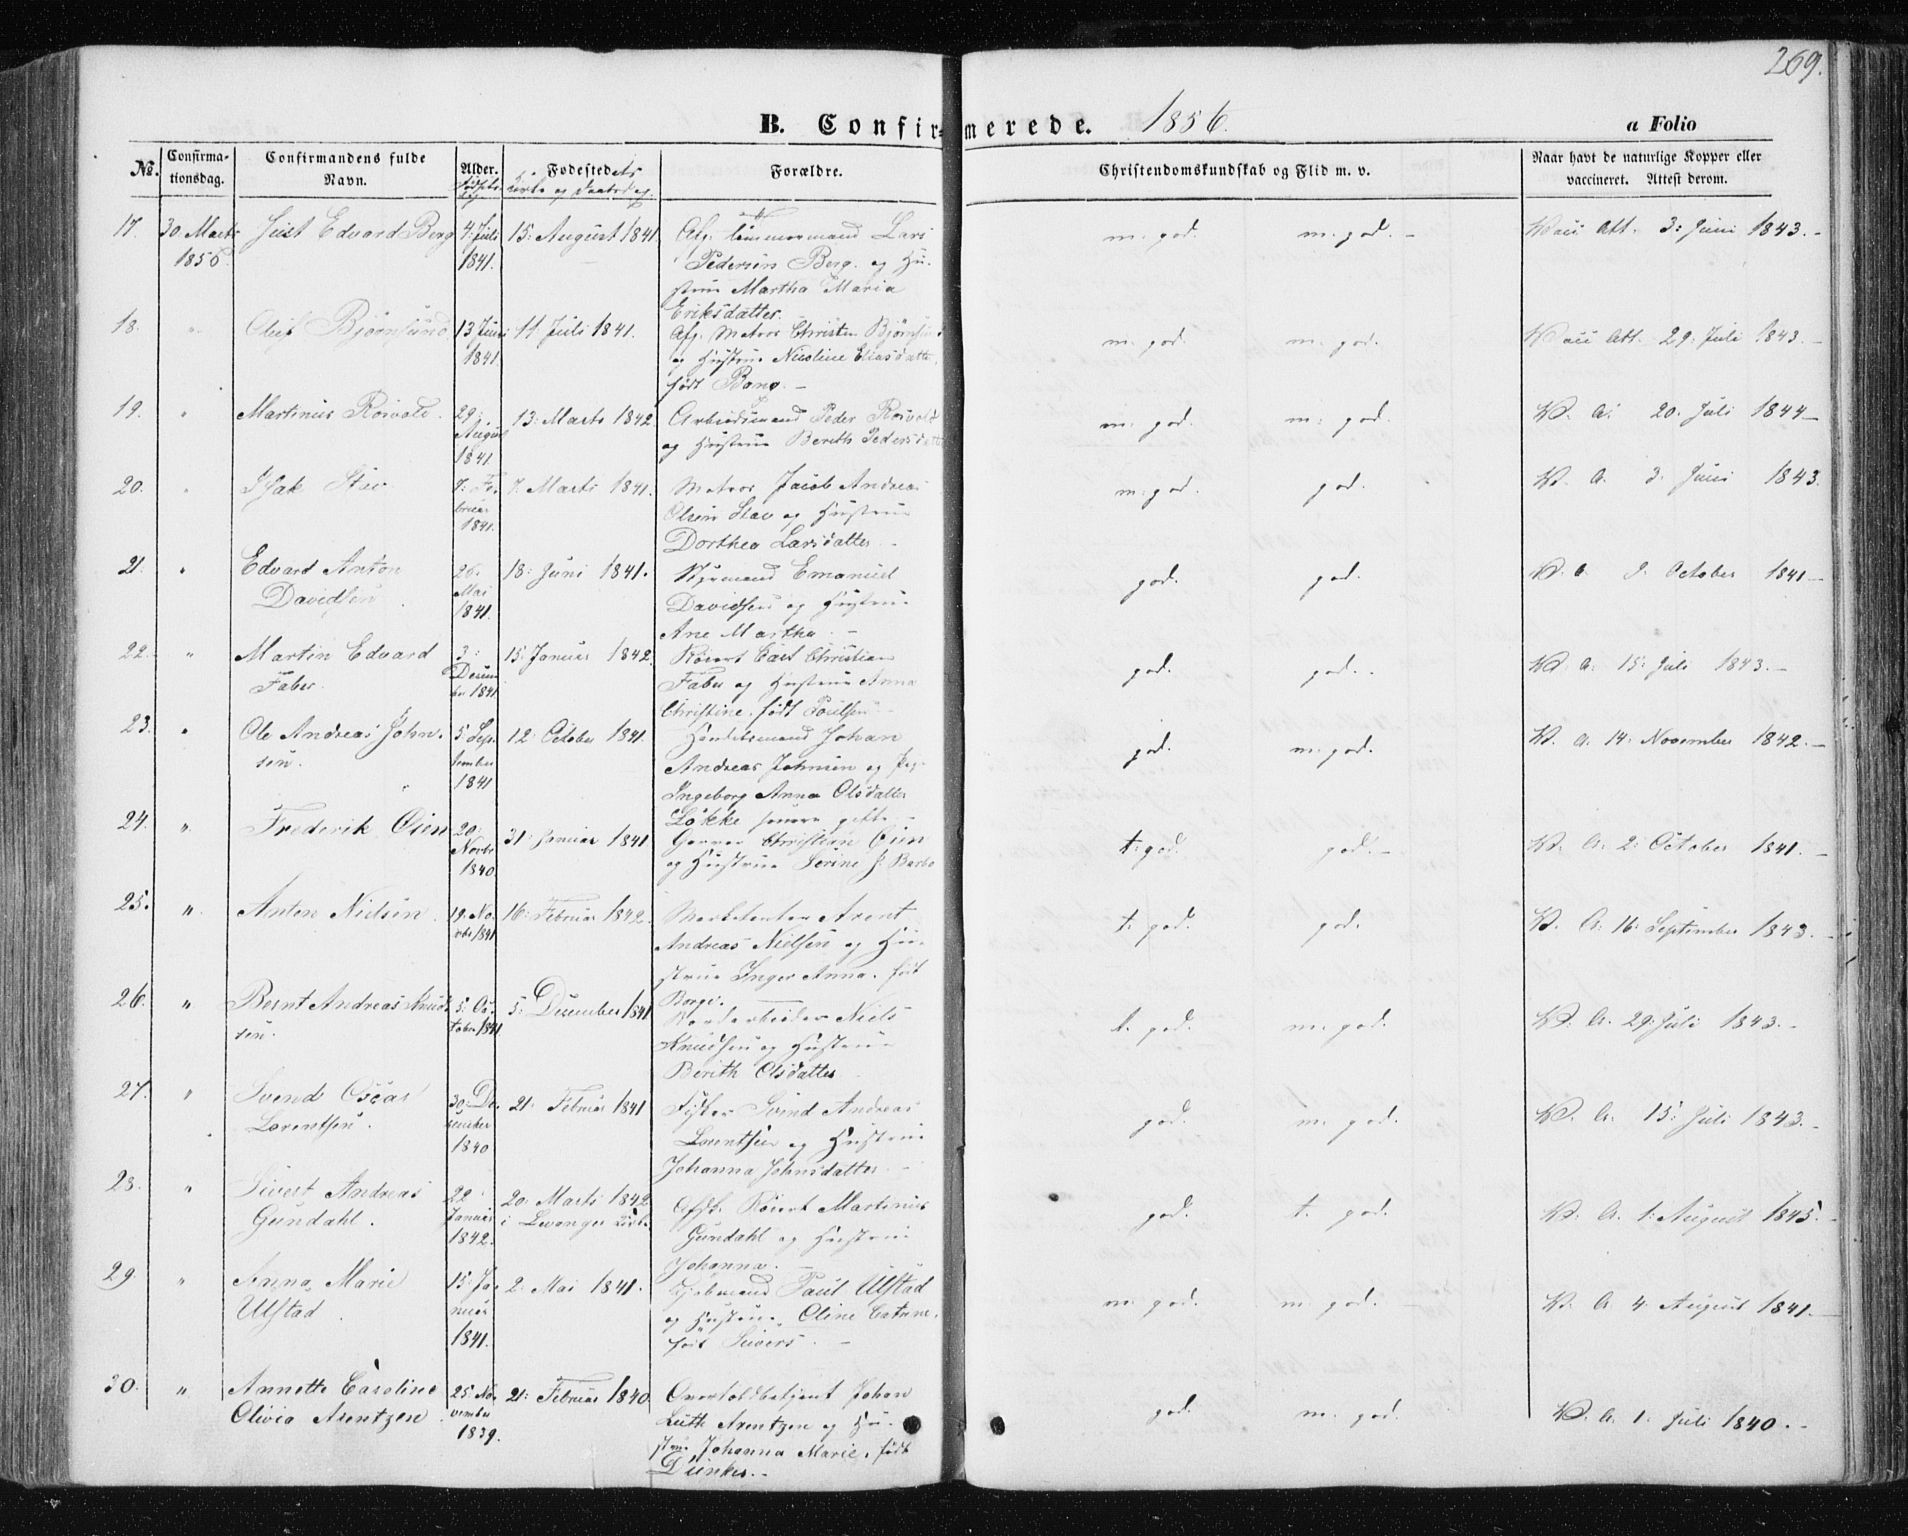 269.
B. Confirmerede. 1856.
a Folio
No. Confirmationsdag. Confirmandens fulde Navn. Alder. Fødselsdag Fødestedets Kirke og Daabsdag. Forældre. Christendomskundskab og Flid m. v. Naar havt de naturlige Kopper eller vaccineret. Attest derom.
17. 30. Marts Just Edvard Berg 4. Juli 15: August 1841. Afg. Tømmermand Lars m. god. m. god. - Vacc Att. 3: Juni 1843. -
1856. 1841. Pedersen Berg. og Hu-
strue Martha Maria
Eriksdatter.
18. " Oluf Bjørnsund 13 Juni 11 Juli 1841. Afg. Matros Christen Bjørnsund m. god. m. god. Vacc Att. 29: Juli 1843. -
1841 og Hustrue Nicoline Eliasdatter.
født Bang. -
19. " Martinus Roivold. 29: 13: Marts 1842 Arbeidsmand Peder Roivold m. god. m. god. V. A. 20. Juli 1844 -
August og Hustrue Berith Pedersdatter
1841.
20. " Isak Stav 7: Fe- 7. Marts 1841. Matros Jacob Andreas m. god. god. V. A. 3. Juni 1843.
bruar Olsen Stav og Hustrue
1841. Dorthea Larsdatter. -
21. " Edvard Anton 26. 18: Juni 1841. Styrmand Emanuel god. god. V. A. 9. October 1841 -
Davidsen. Mai Davidsen og Hustrue
1841. Ane Martha. -
22. " Martin Edvard 3: 15: Januar 1842. Carl Christian god. god. - V. A. 15: Juli 1843. -
Faber. Decem- Faber og Hustrue Anna
ber 1841 Christine. født Poulsen -
23. " Ole Andreas John- 5: Sep- 12: October 1841. Handelsmand Johan god. m. god. V. A. 14: November 1842. -
sen. tember Andreas Johnsen og Pig.
1841 Ingeborg Anna Olsdatter
Løkke senere gifte. -
24. " Frederik Øien 20. 31: Januar 1841 Garver Christian Øien t. god. god. - V. A. 2: October 1841. -
Novbr og Hustrue Serine f. Barbo
1840.
25. " Anton Nielsen. 19. No- 16: Februar 1842. Marketenter Arent t. god. god. V. A. 16: September 1843. -
vbr 1841 Andreas Nielsen og Hu-
strue Inger Anna. født
Borge.
26. " Bernt Andreas Knud- 5. Oc- 5: December 1841 Niels t. god. m. god. V. A. 29: Juli 1843. -
sen. tober 1841 Knudsen og Hustrue
Berith Olsdatter
27. " Svend Oscar 30: De- 21: Februar 1841 Fisker Svend Andreas god. m. god. V. A. 15: Juli 1843. -
Lorentsen. cember Lorentsen og Hustrue
1840 Johanna Johnsdatter. -
28. " Sivert Andreas 22 20: Marts 1842 Afdl. Martinus god. t. god. V. A. 1: August 1845. -
Gundahl. Januar i Levanger Kirke Gundahl og Hustrue
1842. Johanna. -
29. " Anna Marie 15: Ja- 2: Mai 1841. Paul Ulstad m. god. m. god. - V. A. 4. August 1841. -
Ulstad. nuar og Hustrue. Oline Cathrine.
1841. født Sivers. -
30. " Annette Caroline 25. No- 21: Februar 1840. Overtoldbetjent Johan god. m. god. V. A. 1. Juli 1840. -
Olivia Arentzen. vember Luth Arentzen og Hu-
1839. strue Johanna Marie. født
Dunker. -